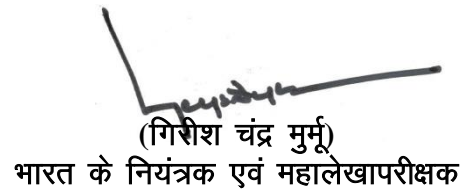 (गिरीश चंद्र मुर्मू)
भारत के नियंत्रक एवं महालेखापरीक्षक